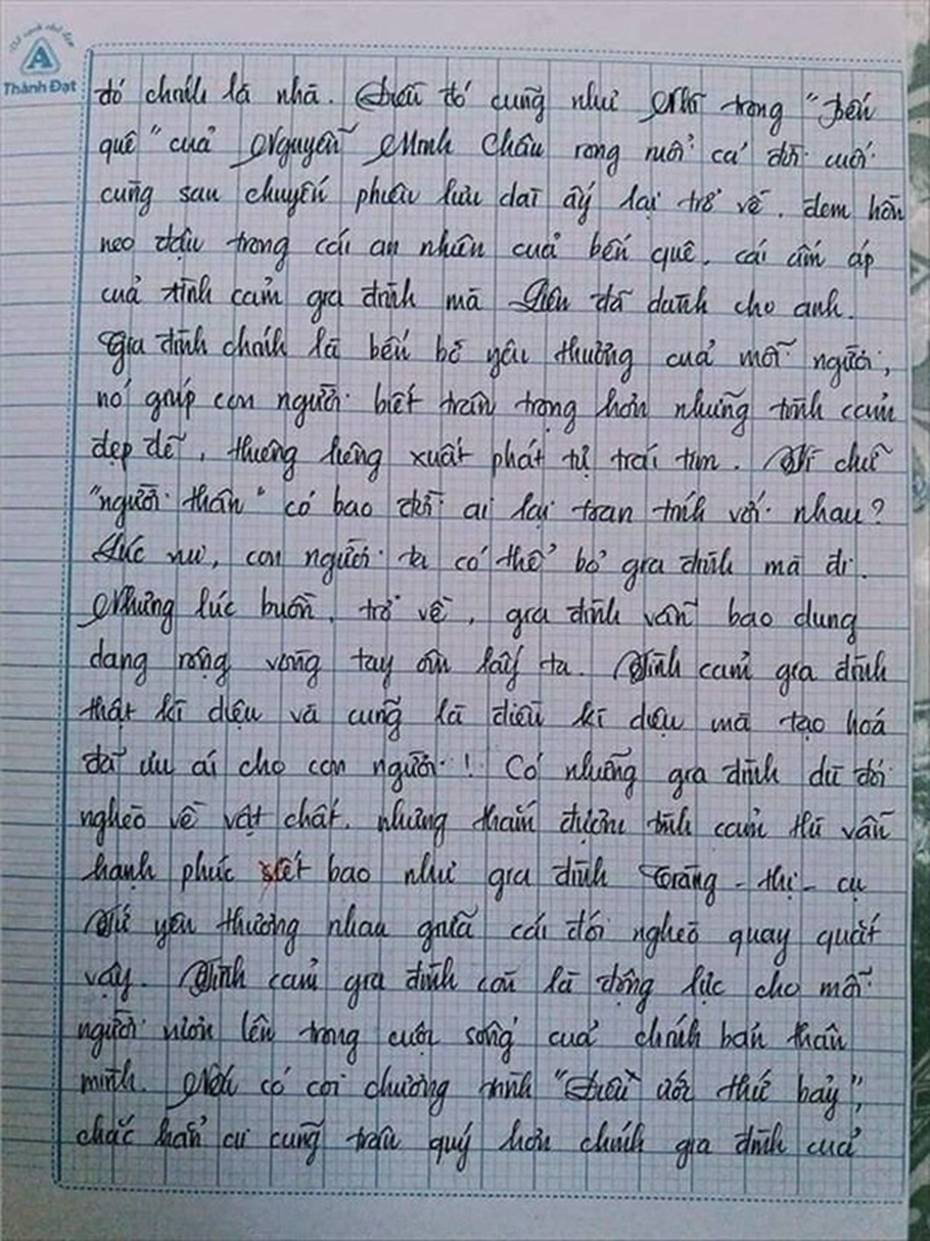 Nét vạch chữ đẹp
A
Thành Đạt
đó chính là nhà. Điều đó cũng như Nhĩ trong "Bến
quê" của Nguyễn Minh Châu rong ruổi cả đời cuối
cùng sau chuyến phiêu lưu dài ấy lại trở về. đem hồn
neo đậu trong cái an nhiên của bến quê, cái ấm áp
của tình cảm gia đình mà Liên đã dành cho anh.
Gia đình chính là bến bờ yêu thương của mỗi người,
nó giúp con người biết trân trọng hơn những tình cảm
đẹp đẽ, thiêng liêng xuất phát từ trái tim. Vì chữ
"người thân" có bao đời ai lại toan tính với nhau?
Lúc vui, con người ta có thể bỏ gia đình mà đi.
Nhưng lúc buồn, trở về, gia đình vẫn bao dung
dang rộng vòng tay ôm lấy ta. Tình cảm gia đình
thật kì diệu và cũng là điều kì diệu mà tạo hoá
đã ưu ái cho con người! Có những gia đình dù đói
nghèo về vật chất. nhưng thắm đượm tình cảm thì vẫn
hạnh phúc xiết bao như gia đình Tràng - thị - cụ
Tứ yêu thương nhau giữa cái đói nghèo quay quắt
vậy. Tình cảm gia đình còn là động lực cho mỗi
người vươn lên trong cuộc sống của chính bản thân
mình. Nếu có coi chương trình "Điều ước thứ bảy",
chắc hẳn cư cũng trân quý hơn chính gia đình của